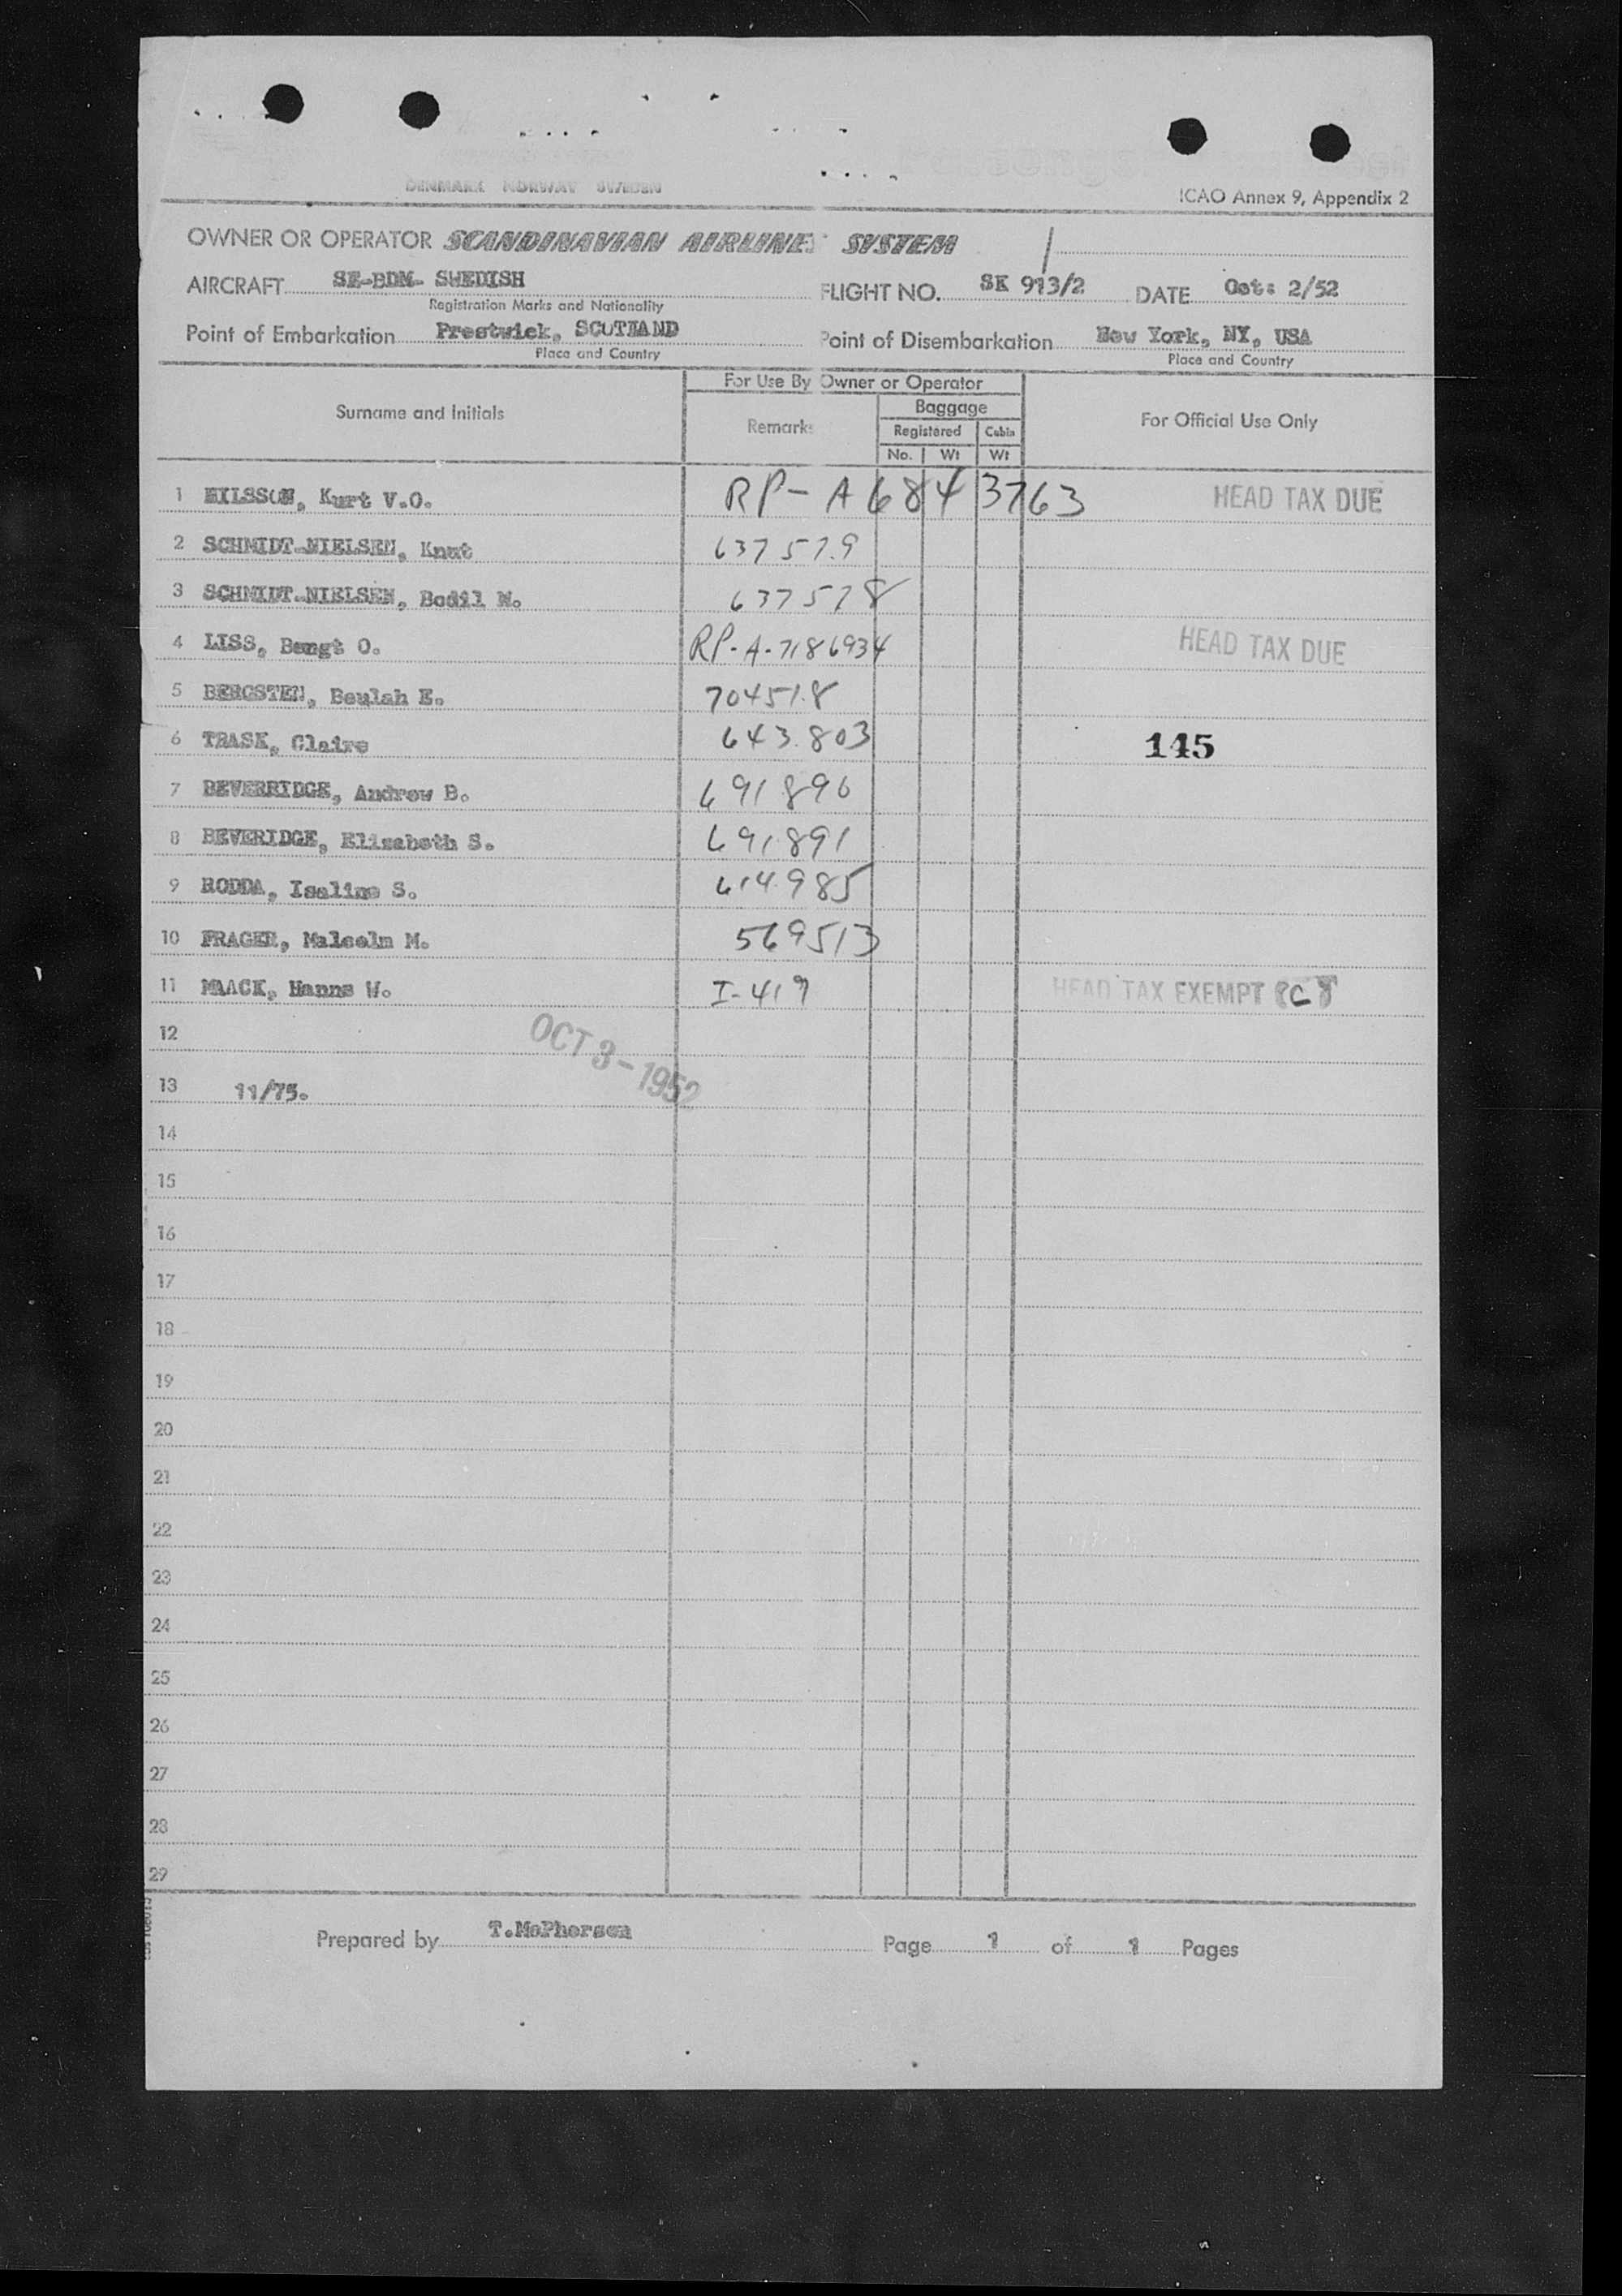 DENMARK NORWAY SWEDEN
ICAO Annex 9, Appendix 2
OWNER OR OPERATOR SCANDINAVIAN AIRLINES SYSTEM
AIRCRAFT SE-BDM- SWEDISH FLIGHT NO. SK 913/2 DATE Oct: 2/52
Registration Marks and Nationality
Point of Embarkation Prestwick, SCOTLAND Point of Disembarkation New York, NY, USA
Place and Country Place and Country
For Use By Owner or Operator
Surname and Initials Remarks Baggage For Official Use Only
Registered Cabin
No. Wt Wt
1 NILSSON, Kurt V.O. RP-A6843763 HEAD TAX DUE
2 SCHMIDT-NIELSEN, Knut 637579
3 SCHMIDT-NIELSEN, Bodil N. 637578
4 LISS, Bengt O. RP-A-7186934 HEAD TAX DUE
5 BERGSTEN, Beulah E. 704518
6 TRASK, Claire 643803 145
7 BEVERRIDGE, Andrew B. 691890
8 BEVERIDGE, Elizabeth S. 691891
9 RODDA, Isaline S. 614985
10 FRAGER, Malcolm M. 569513
11 MAACK, Hanns W. I-419 HEAD TAX EXEMPT
12 OCT 3-1952
13 11/75.
14
15
16
17
18
19
20
21
22
23
24
25
26
27
28
29
Prepared by T.McPherson Page 1 of 1 Pages